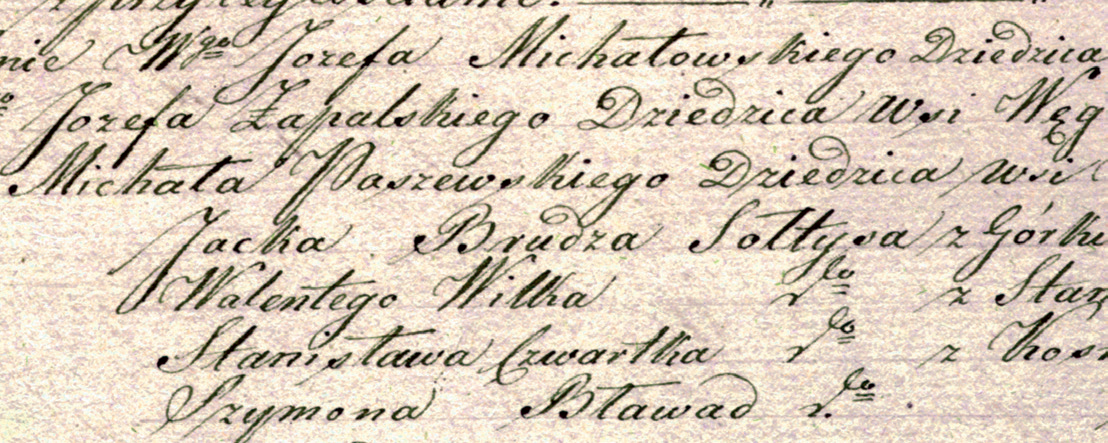 Wgo Jozefa Michałowskiego Dziedzica
Jozefa Zapalskiego Dziedzica wsi Węg
Michała Paszewskiego Dziedzica wsi
Jacka Brudza Sołtysa z Górki
Walentego Wilka dto z Star
Stanisława Czwartka dto z Kos
Szymona Bławad dto